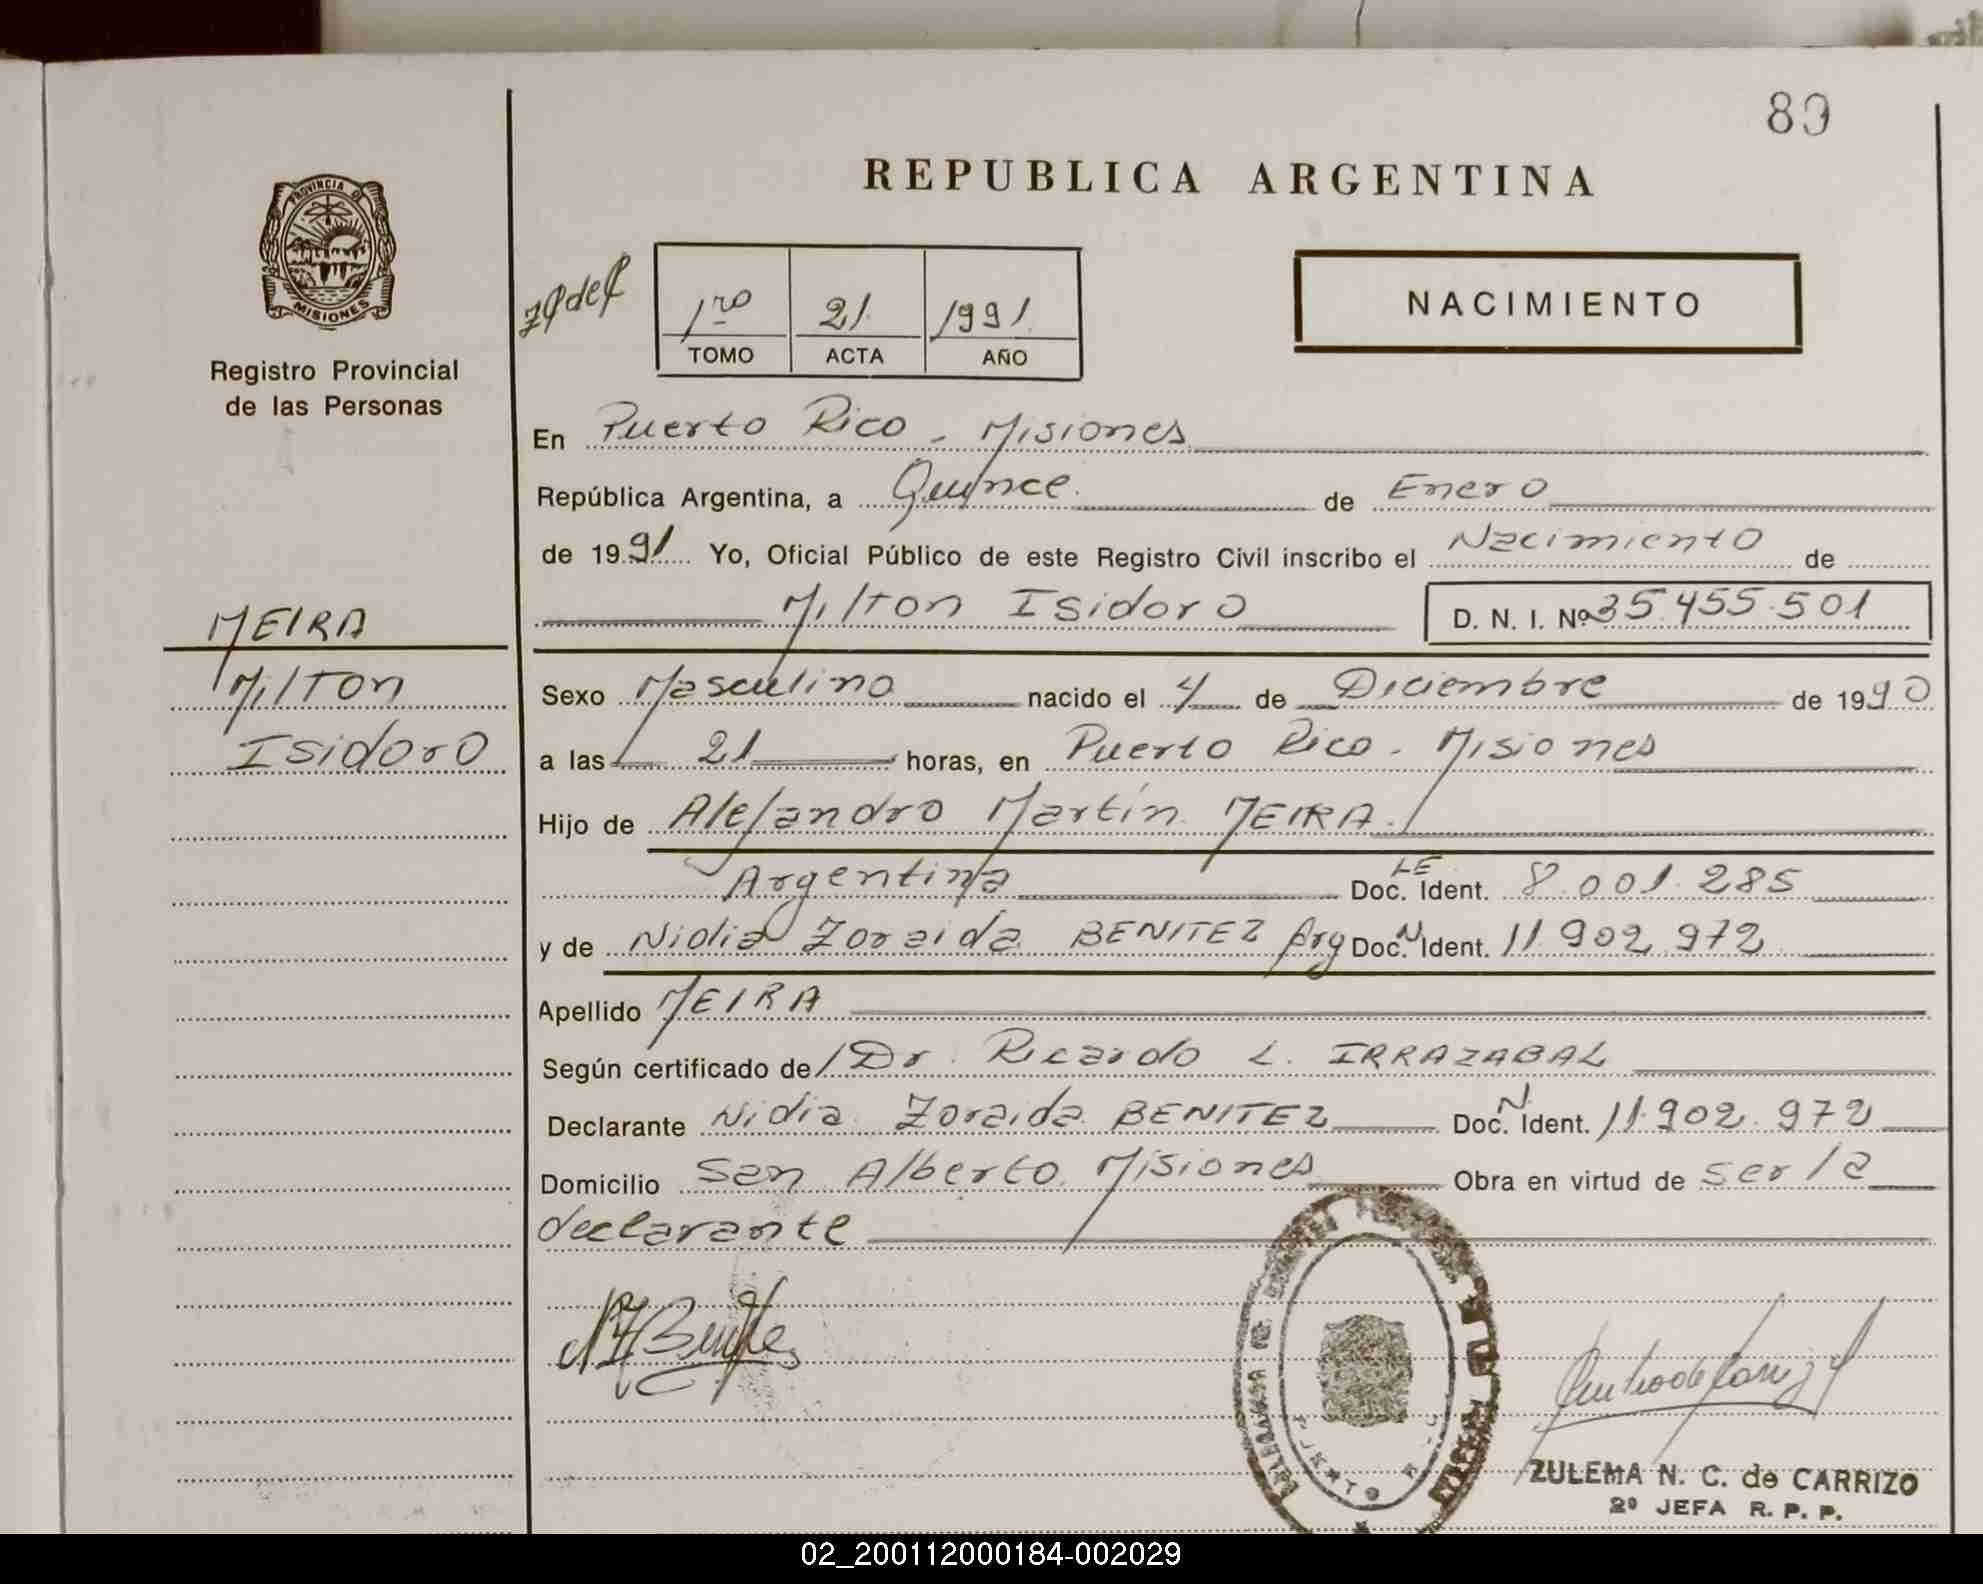 80
REPUBLICA ARGENTINA
PROVINCIA DE
MISIONES
Registro Provincial
de las Personas
1ro 21 1991
TOMO ACTA AÑO
NACIMIENTO
En Puerto Rico - Misiones
República Argentina, a Quince de Enero
de 1991 Yo, Oficial Público de este Registro Civil inscribo el Nacimiento de
Milton Isidoro D. N. I. Nº 35.455.501
MEIRA
Milton
Isidoro
Sexo Masculino nacido el 4 de Diciembre de 1990
a las 21 horas, en Puerto Rico - Misiones
Hijo de Alejandro Martín MEIRA.
Argentina LE Doc. Ident. 8.001.285
y de Nidia Zoraida BENITEZ Arg Doc. N Ident. 11.902.972
Apellido MEIRA
Según certificado de Dr. Ricardo L. IRRAZABAL
Declarante Nidia Zoraida BENITEZ Doc. N Ident. 11.902.972
Domicilio San Alberto. Misiones Obra en virtud de ser la
declarante
PUERTO RICO
ZULEMA N. C. de CARRIZO
2º JEFA R. P. P.
02_200112000184-002029